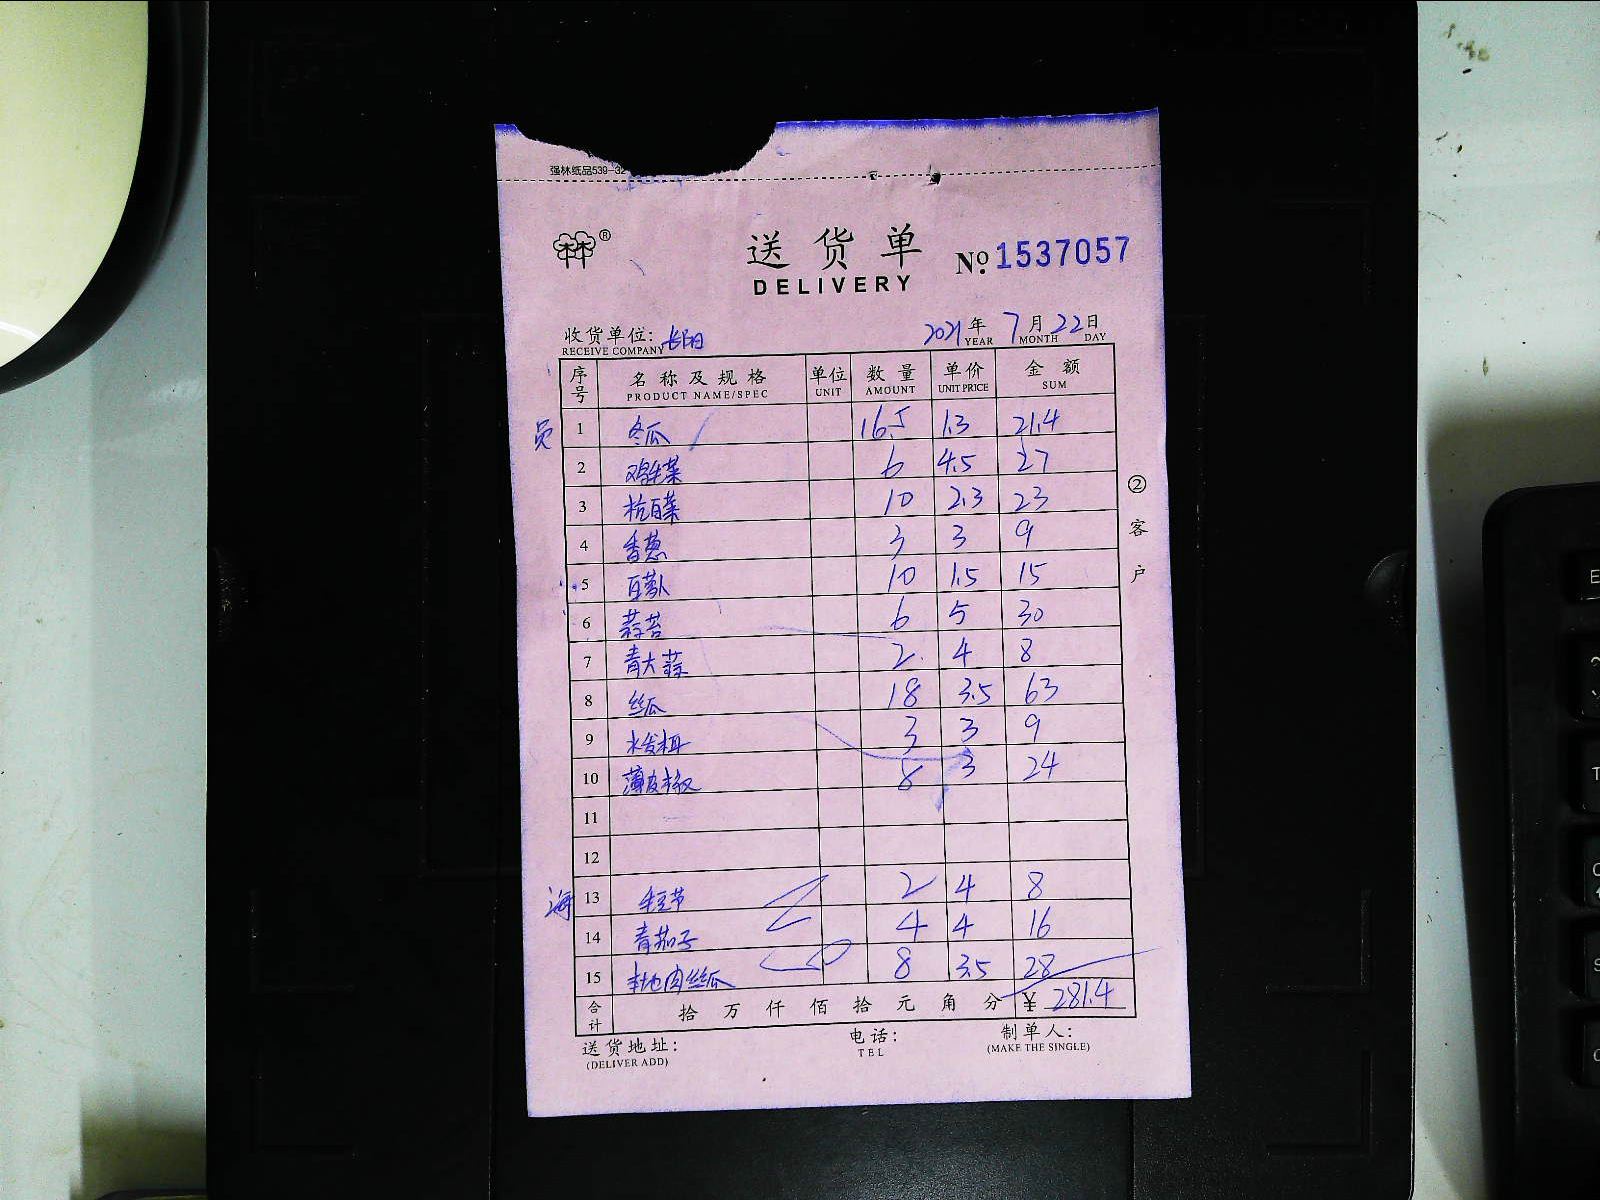 强林纸品539-32
送货单 №1537057
DELIVERY
收货单位: 2021年7月22日
RECEIVE COMPANY YEAR MONTH DAY
序号 名称及规格 单位 数量 单价 金额
PRODUCT NAME/SPEC UNIT AMOUNT UNIT PRICE SUM
员 1 冬瓜 16.5 1.3 21.4
2 鸡毛菜 6 4.5 27
3 杭白菜 10 2.3 23
4 香葱 3 3 9
5 白萝卜 10 1.5 15
6 蒜苔 6 5 30
7 青大蒜 2 4 8
8 丝瓜 18 3.5 63
9 水发木耳 3 3 9
10 薄皮椒 8 3 24
11
12
海 13 毛豆节 2 4 8
14 青茄子 4 4 16
15 本地肉丝瓜 8 3.5 28
合计 拾万仟佰拾元角分 ¥281.4
送货地址: 电话: 制单人:
(DELIVER ADD) TEL (MAKE THE SINGLE)
②客户